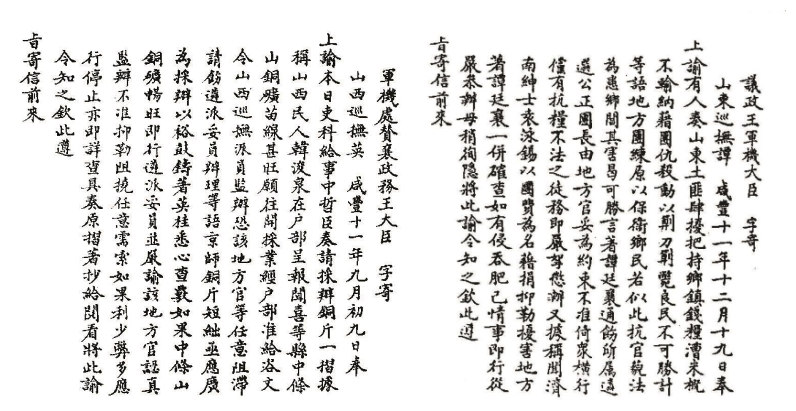 議政王軍機大臣 字寄
山東巡撫譚 咸豐十一年十二月十九日奉
上諭有人奏山東土匪肆擾把持鄉鎮錢糧漕米概
不輸納藉團仇殺動以刀斃良民不可勝計
等語地方團練原以保衛鄉民若似此抗官藐法
為患鄉閭其害曷可勝言著譚廷襄通飭所屬遴
選公正團長由地方官妥為約束不准倚眾橫行
僅有抗糧不法之徒務即嚴拏懲辦又據稱聞濟
南紳士袁泳錫以團費為名藉捐抑勒擾害地方
著譚廷襄一併確查如有侵吞肥己情事即行從
嚴參辦毋稍徇隱將此諭令知之欽此遵
旨寄信前來
軍機處贊襄政務王大臣 字寄
山西巡撫英 咸豐十一年九月初九日奉
上諭本日吏科給事中哲臣奏請採辦銅斤一摺據
稱山西民人韓浚泉在戶部呈報聞喜等縣中條
山銅礦苗線甚旺願往開採業經戶部准給咨文
令山西巡撫派員監辦恐該地方官等任意阻滯
請飭遴派妥員辦理等語京師銅斤短絀亟應廣
為採辦以裕鼓鑄著英桂悉心查覈如果中條山
銅礦暢旺即行遴派妥員並嚴諭該地方官認真
監辦不准抑勒阻撓任意需索如果利少弊多應
行停止亦即詳查具奏原摺著抄給閱看將此諭
令知之欽此遵
旨寄信前來